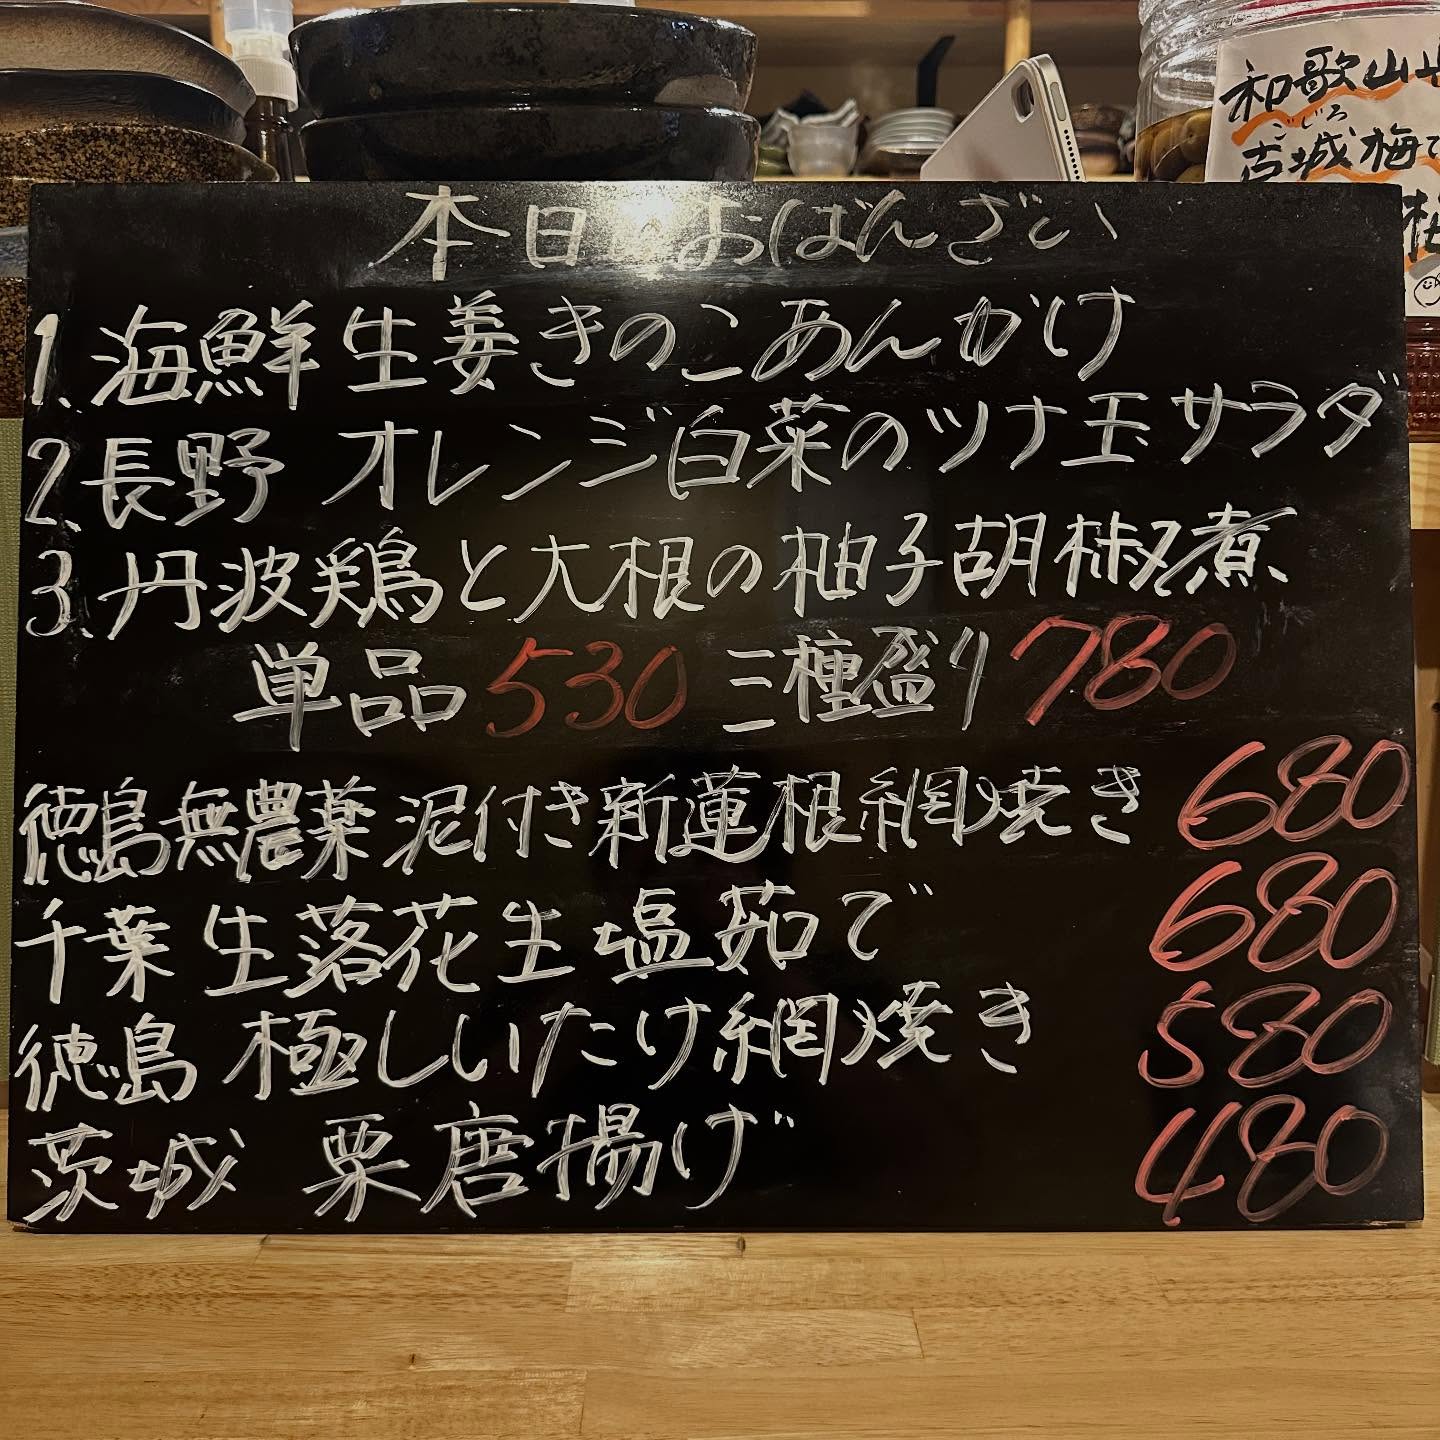 和歌山
ごじろ
古城梅で
本日のおばんざい
1. 海鮮生姜きのこあんかけ
2. 長野 オレンジ白菜のツナ玉サラダ
3. 丹波鶏と大根の柚子胡椒煮
単品 530 三種盛り 780
徳島無農薬 泥付き新蓮根網焼き 680
千葉 生落花生 塩茹で 680
徳島 極しいたけ網焼き 580
茨城 栗唐揚げ 480